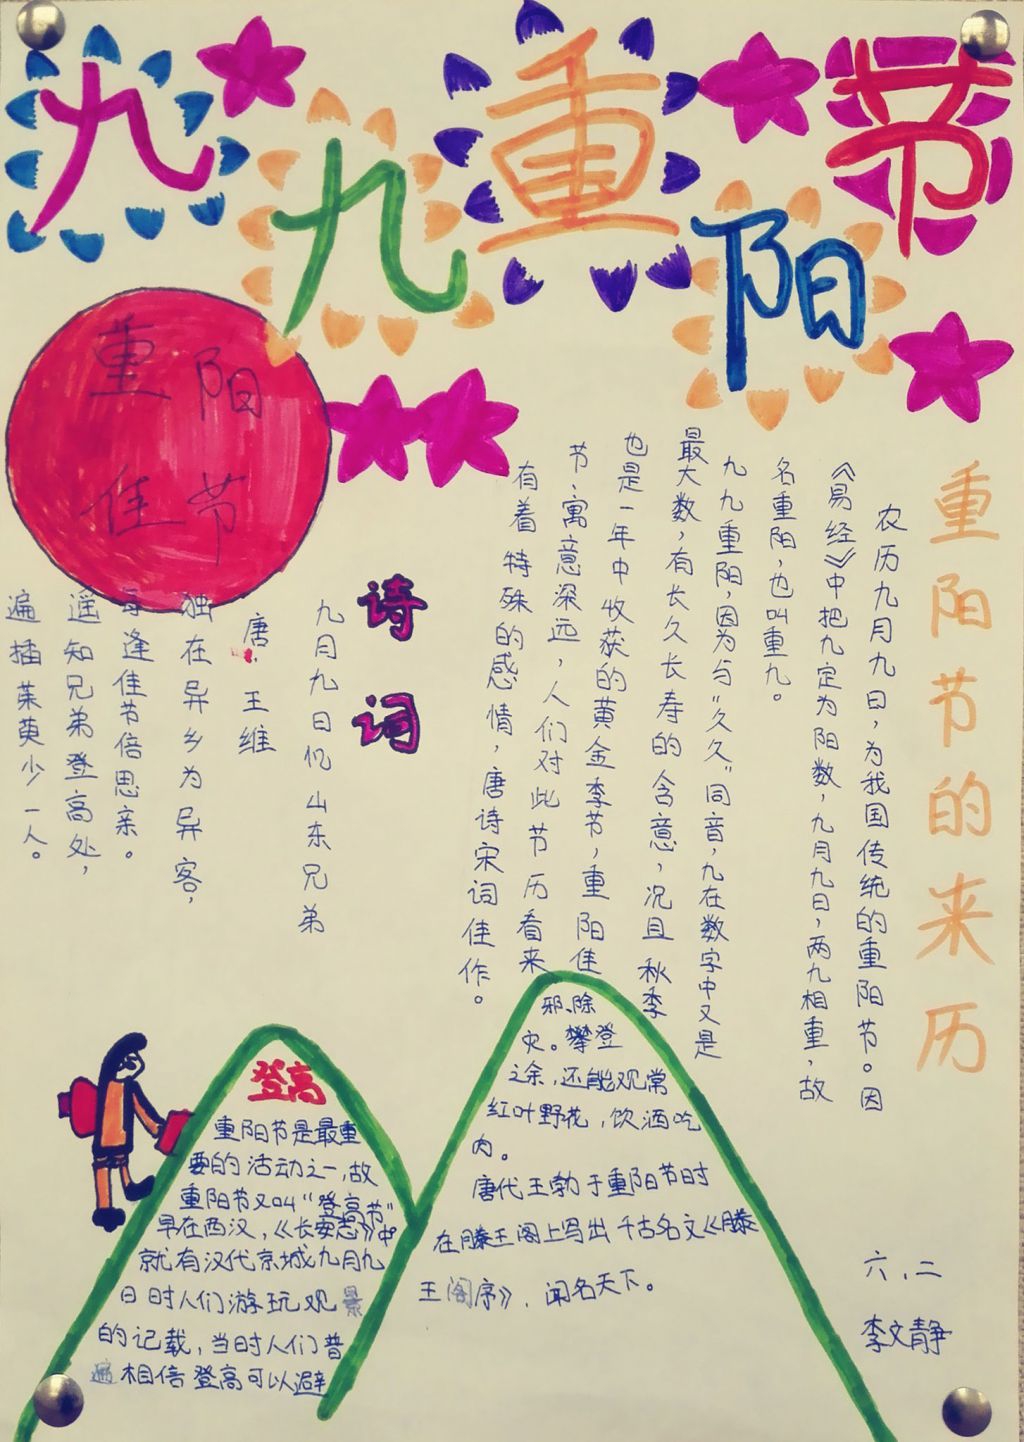 九九重阳节
重阳
佳节
重阳节的来历
农历九月九日，为我国传统的重阳节。因
《易经》中把九定为阳数，九月九日，两九相重，故
名重阳，也叫重九。
九九重阳，因为与“久久”同音，九在数字中又是
最大数，有长久长寿的含意，况且秋季
也是一年中收获的黄金季节，重阳佳
节、寓意深远，人们对此节历看来
有着特殊的感情，唐诗宋词佳作。
诗词
九月九日忆山东兄弟
唐．王维
独在异乡为异客，
每逢佳节倍思亲。
遥知兄弟登高处，
遍插茱萸少一人。
登高
重阳节是最重
要的活动之一，故
重阳节又叫“登高节”
早在西汉，《长安志》中
就有汉代京城九月九
日时人们游玩观景
的记载，当时人们普
遍相信登高可以避
邪、除
灾。攀登
之余，还能观赏
红叶野花，饮酒吃
肉。
唐代王勃于重阳节时
在滕王阁上写出千古名文《滕
王阁序》，闻名天下。
六．二
李文静